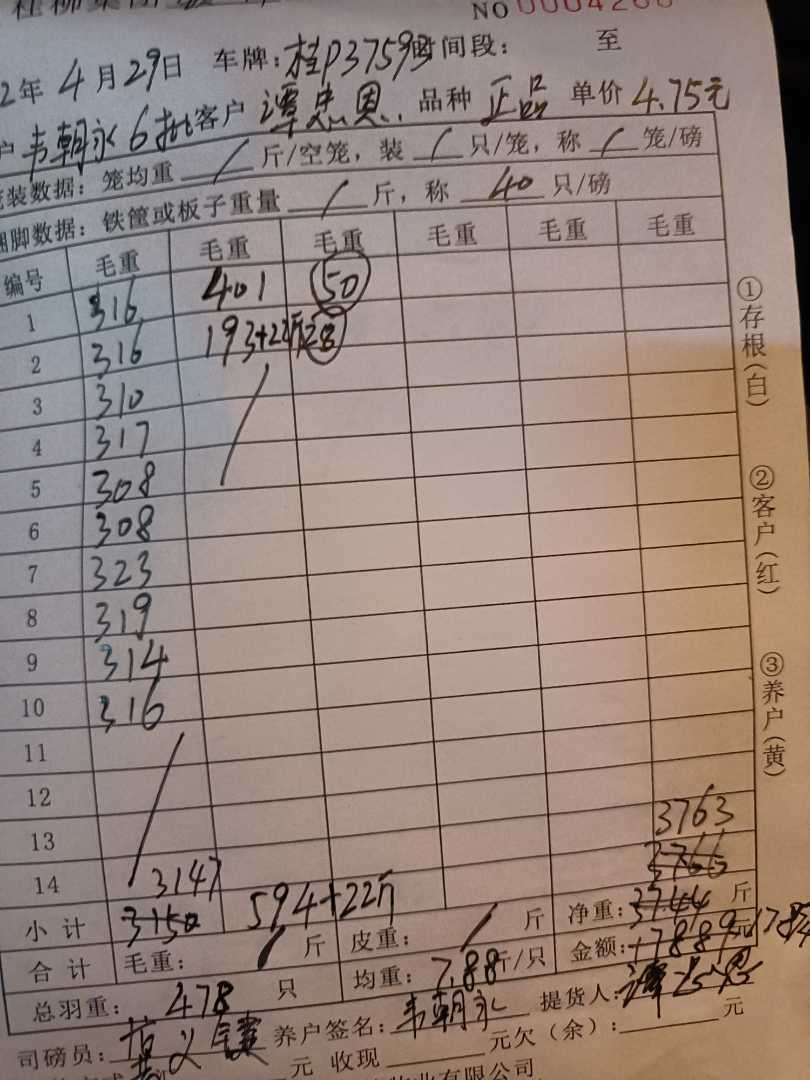 NO 0004266
2年 4 月 29 日 车牌:桂P3759 时间段: 至
户 韦朝永 6批 客户 谭忠恩 品种 正品 单价 4.75元
装数据: 笼均重 / 斤/空笼, 装 / 只/笼, 称 / 笼/磅
捆脚数据: 铁筐或板子重量 / 斤, 称 40 只/磅
编号 毛重 毛重 毛重 毛重 毛重 毛重
1 316 401 50
2 316 193+22斤 28
3 310
4 317
5 308
6 308
7 323
8 319
9 314
10 316
11
12
13 3763
14 3147 3766
小计 3150 594+22斤 净重: 3744 斤
合计 毛重: / 斤 皮重: / 斤 金额: 元
总羽重: 478 只 均重: 7.88 斤/只 提货人:
司磅员: 养户签名: 韦朝永
元 收现 元欠(余): 元
业有限公司
①存根(白)
②客户(红)
③养户(黄)